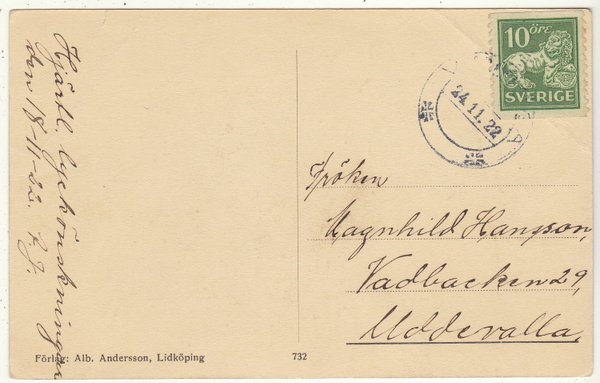 Hjärtl. lyckönskningar
den 18-11-22.
10 ÖRE
SVERIGE
24.11.22
Fröken
Magnhild Hansson,
Vadbacken 29,
Uddevalla,
Förlag: Alb. Andersson, Lidköping
732